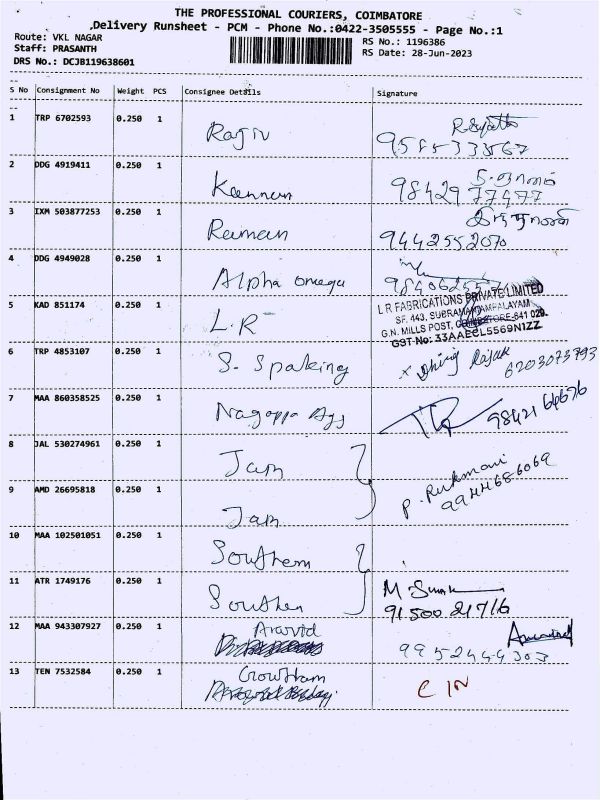 THE PROFESSIONAL COURIERS, COIMBATORE
Delivery Runsheet - PCM - Phone No.:0422-3505555 - Page No.:1
Route: VKL NAGAR
RS No.: 1196386
Staff: PRASANTH
RS Date: 28-Jun-2023
DRS No.: DCJB119638601
S No Consignment No Weight PCS Consignee Details Signature
1 TRP 6702593 0.250 1 Rajiv
9585533567
2 DDG 4919411 0.250 1 Kannan
9842977477
3 IXM 503877253 0.250 1 Raman
9442552070
4 DDG 4949028 0.250 1 Alpha omega
L R FABRICATIONS PRIVATE LIMITED
SF. 443, SUBRAMANIAMPALAYAM
5 KAD 851174 0.250 1 L.R
G.N. MILLS POST, COIMBATORE-641 029.
GST No: 33AAECL5569N1ZZ
6 TRP 4853107 0.250 1 S. Spaking
6203073793
7 MAA 860358525 0.250 1 Nagappa Ags
98421 64676
8 JAL 530274961 0.250 1 Jain
P. Rukmani
9944686069
9 AMD 26695818 0.250 1 Jain
10 MAA 102501051 0.250 1 Southern
11 ATR 1749176 0.250 1 Southen
91500 21716
12 MAA 943307927 0.250 1 Aravid
9952444303
13 TEN 7532584 0.250 1 Gowtham